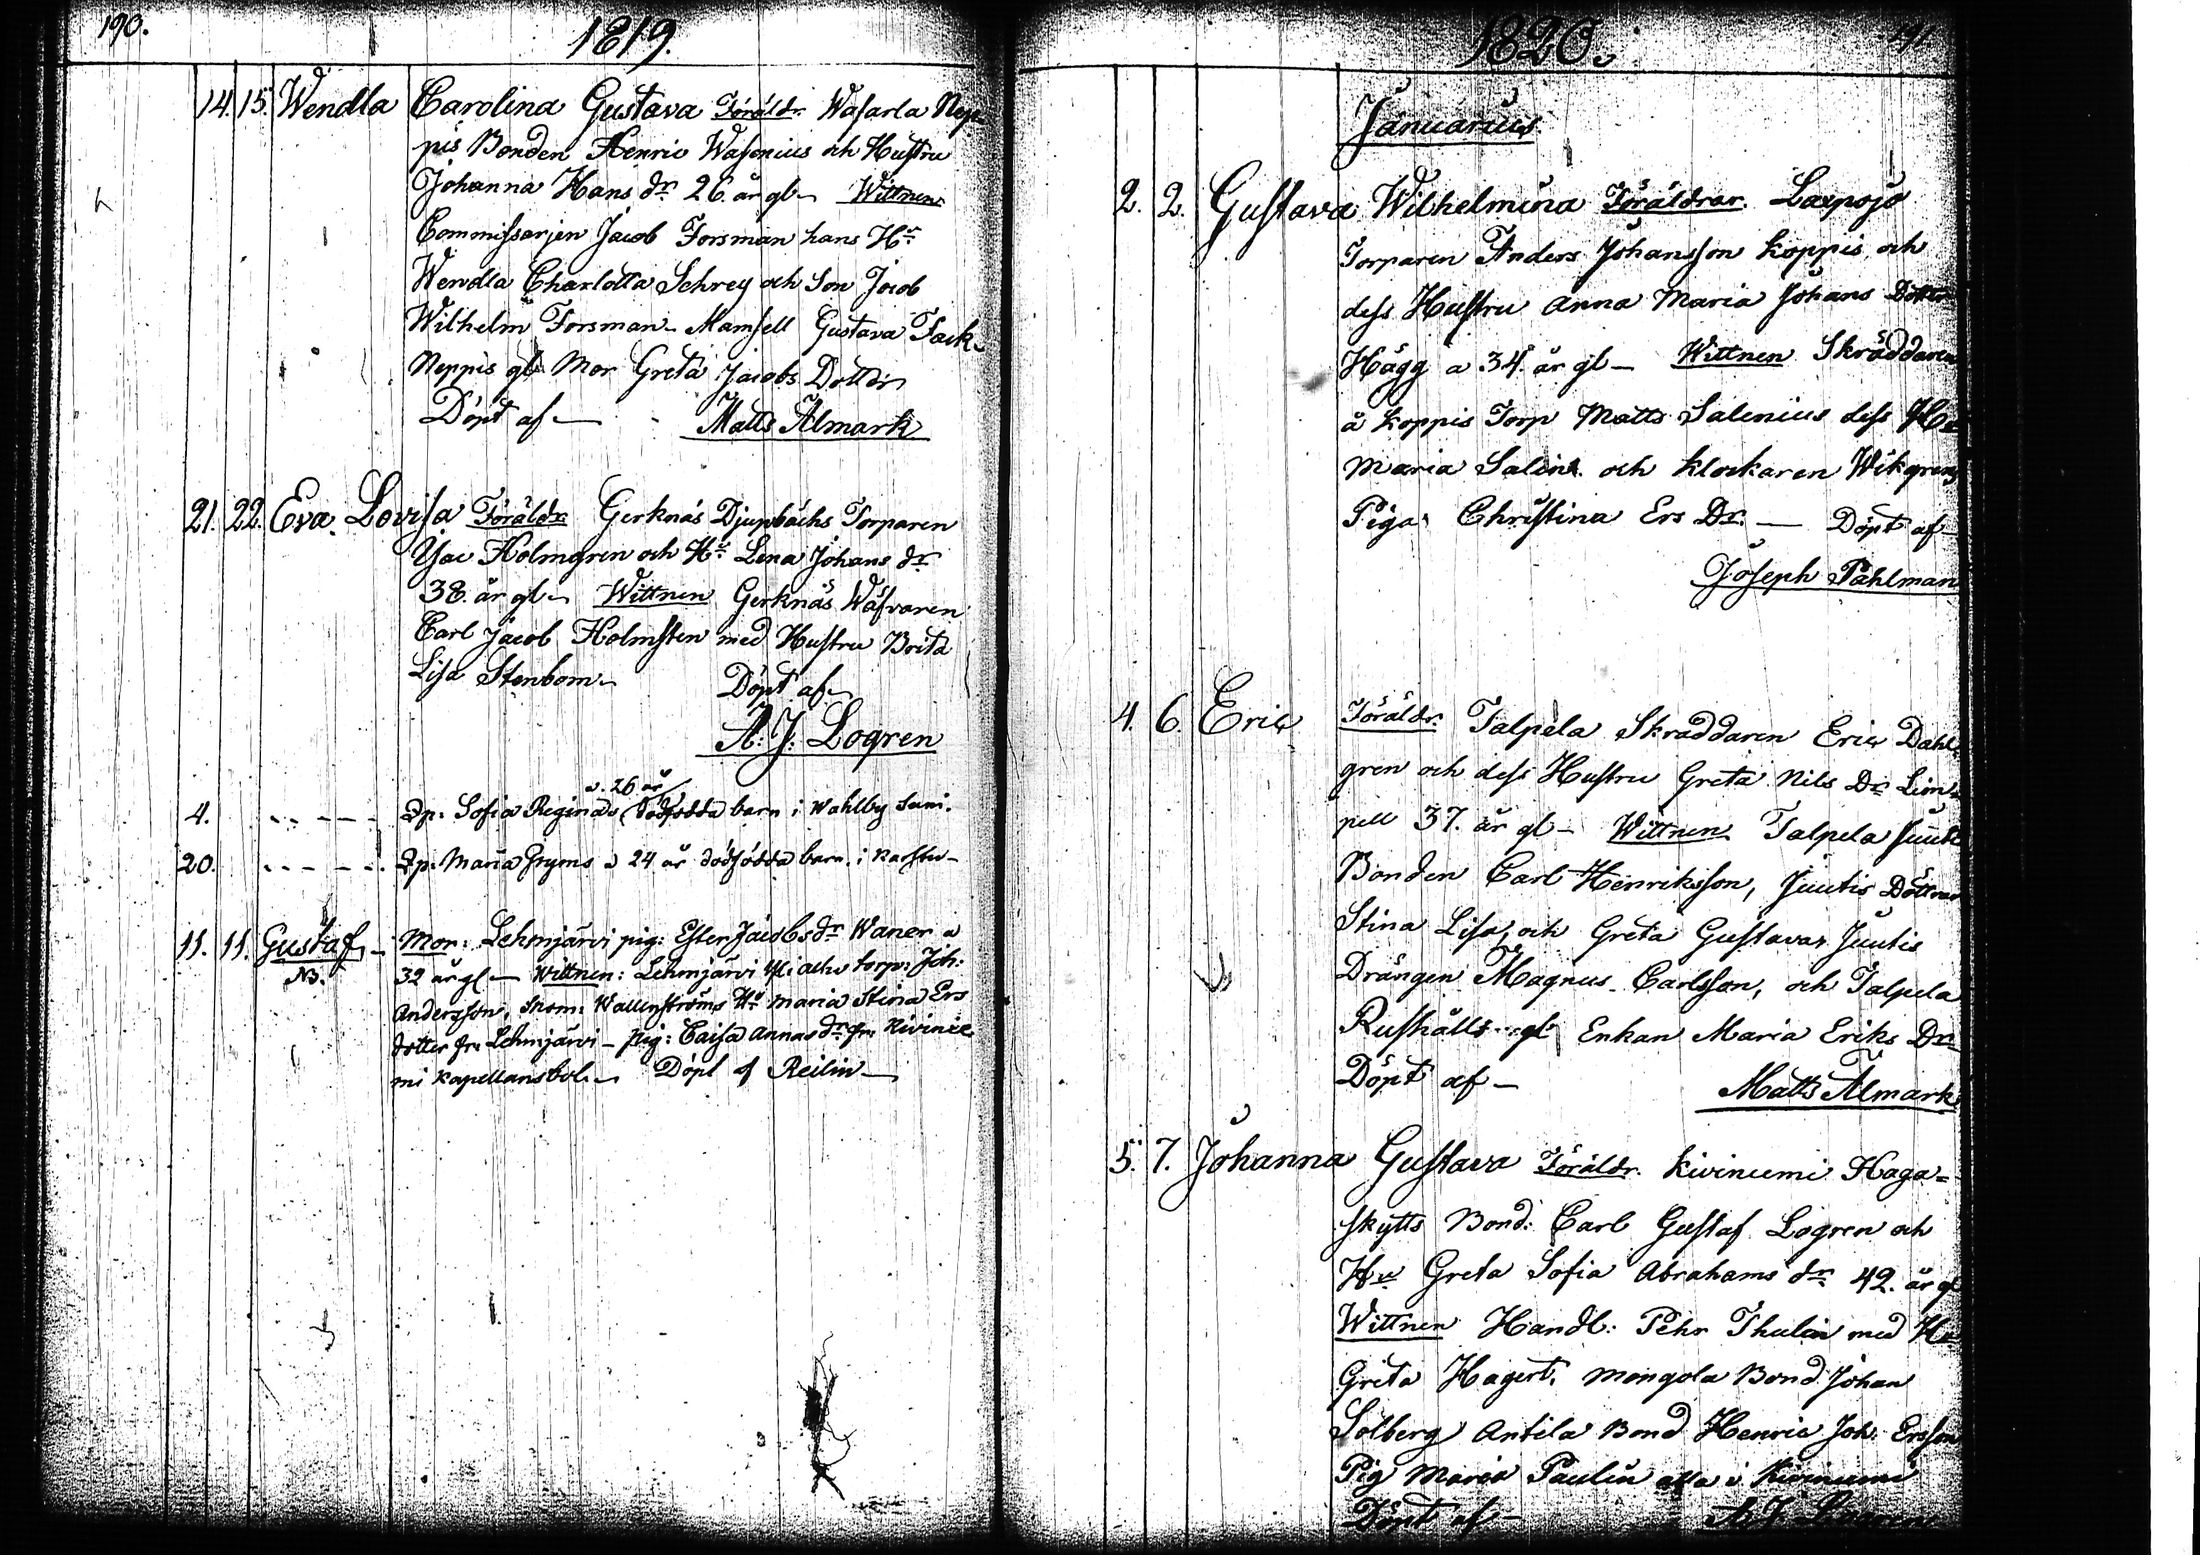 190.
1819.
14. 15. Wendla Carolina Gustava Föräldr. Wasarla Nep-
pis Bonden Henric Wasenius och Hustru
Johanna Hans dr. 26. år gl. Wittnen
Commissarjen Jacob Forsman hans Hu
Wendla Charlotta Schrey och Son Jacob
Wilhelm Forsman. Mamsell Gustava Fack.
Neppis gl. Mor Greta Jacobs Dotter
Döpt af Matts Almark
21. 22. Eva Lovisa Föräldr. Gerknäs Djupbäcks Torparen
Isac Holmgren och Hu Lena Johans dr
38. år gl. Wittnen Gerknäs Wäfvaren
Carl Jacob Holmsten med Hustru Brita
Lisa Stenbom. Döpt af
A. J. Logren
a. 26 år
4. Qp. Sofia Reginas dödfödda barn i Wahlby Suni.
20. Qp. Maria Gryms a 24 år dödfödda barn i Karstu
11. 11. Gustaf Mor: Lehmjärvi pig: Ester Jacobs dr Waner a
NB. 32 år gl. Wittnen: Lehmjärvi torp: Joh:
Andersson, Wallenströms Hu Maria Stina Ers
dotter fr. Lehmjärvi pig: Caisa Annas dr fr. Kivinie
mi Kapellansbol. Döpt af Reilin
1820.
191.
Januarius
2. 2. Gustava Wilhelmina Föräldrar. Laxpojo
Torparen Anders Johansson Koppis och
dess Hustru Anna Maria Johans Dotter
Hägg a 34. år gl Wittnen Skräddaren
å Koppis Torp Matts Salenius dess Hu
Maria Salin. och Klockaren Wikgrens
Piga Christina Ers Dr. Döpt af
Joseph Påhlman
4. 6. Eric Föräldr. Talpela Skräddaren Eric Dahl-
gren och dess Hustru Greta Nils Dr Lim-
pell 37. år gl Wittnen Talpela Juuti
Bonden Carl Henriksson, Juutis Döttrar
Stina Lisa, och Greta Gustava, Juutis
Drängen Magnus Carlsson, och Talpela
Rusthålls gl Enkan Maria Eriks Dr.
Döpt af Matts Almark
5. 7. Johanna Gustava Föräldr. Kiviniemi Haga-
skytts Bond: Carl Gustaf Logren och
Hu Greta Sofia Abrahams dr 42. år gl
Wittnen Handl: Pehr Thulin med Hu
Greta Hagert, Mongola Bond Johan
Solberg Antila Bond Henric Joh. Ersson
Pig Maria Paulin alla i Kiviniemi
Döpt af A. J. Logren